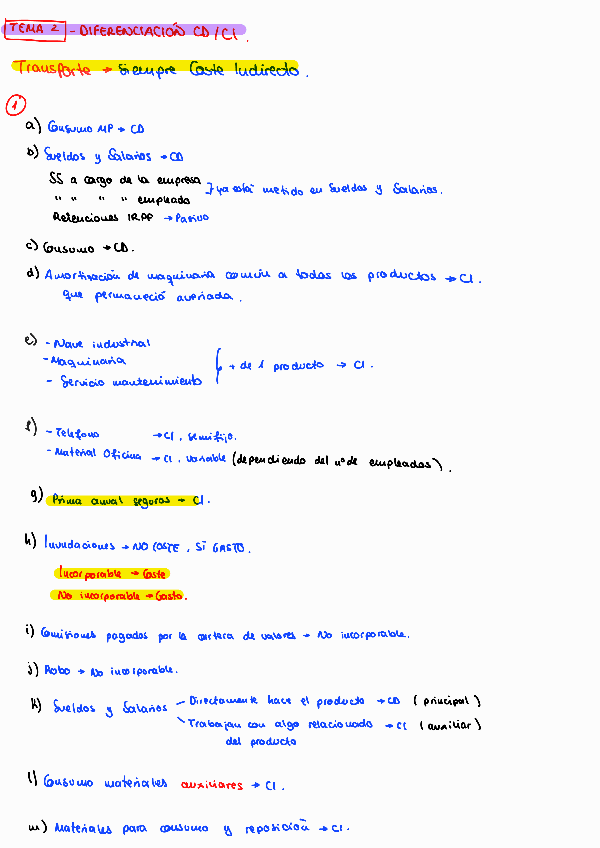 TEMA 2 - DIFERENCIACIÓN CD/CI.
Transporte → Siempre Coste Indirecto.
1
a) Consumo MP → CD
b) Sueldos y Salarios → CD
SS a cargo de la empresa
" " " " empleado
} ya está metido en Sueldos y Salarios.
Retenciones IRPF → Pasivo
c) Consumo → CD.
d) Amortización de maquinaria común a todos los productos → CI.
que permaneció averiada.
e) - Nave industrial
- Maquinaria
- Servicio mantenimiento
+ de 1 producto → CI.
f) - Teléfono → CI, semifijo.
- Material Oficina → CI, variable (dependiendo del nº de empleados).
g) Prima anual seguros → CI.
h) Inundaciones → NO COSTE, SI GASTO.
Incorporable → Coste
No incorporable → Gasto.
i) Comisiones pagados por la cartera de valores → No incorporable.
j) Robo → No incorporable.
k) Sueldos y Salarios - Directamente hace el producto → CD (principal)
- Trabajan con algo relacionado → CI (auxiliar)
del producto
l) Consumo materiales auxiliares → CI.
m) Materiales para consumo y reposición → CI.